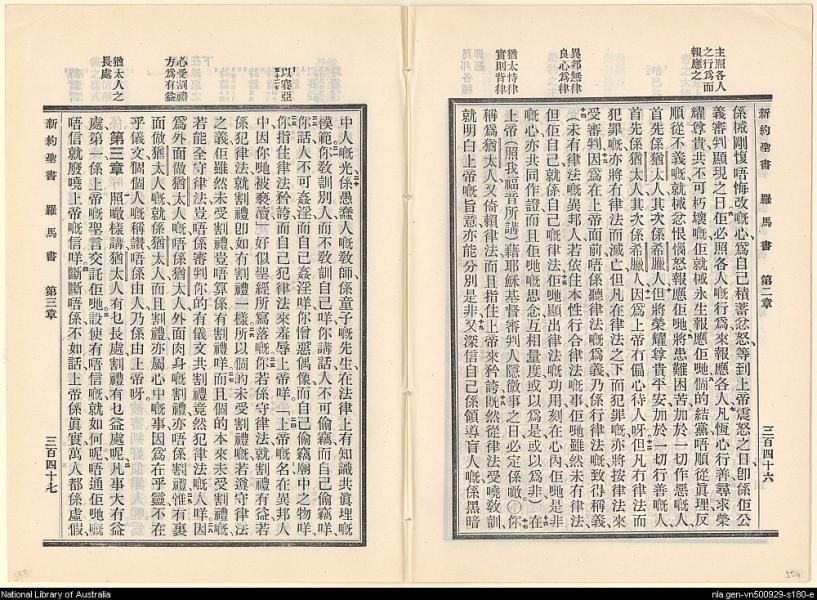 新約聖書 羅馬書 第二章 三百四十六
主照各人
之行爲而
報應之
異邦無律
良心爲律
猶太恃律
實則背律
係𢫦剛愎唔悔改嘅心爲自己積蓄忿怒等到上帝震怒之日卽係佢公
義審判顯現之日佢必照各人嘅行爲來報應各人凡恆心行善尋求榮
耀尊貴共不可朽壞嘅佢就𢫦永生報應佢哋個的結黨唔順從眞理反
順從不義嘅就𢫦忿恨惱怒報應佢哋將患難困苦加於一切作惡嘅人
首先係猶太人其次係希臘人但將榮耀尊貴平安加於一切行善嘅人
首先係猶太人其次係希臘人因爲上帝冇偏心待人呀但凡冇律法而
犯罪嘅亦將冇律法而滅亡但凡在律法之下而犯罪嘅亦將按律法來
受審判因爲在上帝面前唔係聽律法嘅爲義乃係行律法嘅致得稱義
(未有律法嘅異邦人若依住本性行合律法嘅事佢哋雖然未有律法
但佢自己就係自己嘅律法佢哋顯出律法嘅功用刻在心內佢哋是非
嘅心亦共同作證而且佢哋嘅思念互相量度或以爲是或以爲非)在
上帝(照我福音所講)藉耶穌基督審判人隱微事之日必定係噉○你
稱爲猶太人又倚賴律法而且指住上帝來矜誇既然從律法受嘵敎訓
就明白上帝嘅旨意亦能分別是非又深信自己係領導盲人嘅係黑暗
以賽亞
五十二 五
心受割禮
方爲有益
猶太人之
長處
中人嘅光係愚蠢人嘅敎師係童子嘅先生在法律上有知識共眞理嘅
模範你敎訓別人而不敎訓自己咩你講話人不可偷竊而自己偷竊咩
你話人不可姦淫而自己姦淫咩你憎惡偶像而自己偷竊廟中之物咩
你指住律法矜誇而自己犯律法來羞辱上帝咩「上帝嘅名在異邦人
中因你哋被褻瀆」好似聖經所寫落嘅你若係守律法就割禮有益若
係犯律法就割禮卽如冇割禮一樣所以個的未受割禮嘅若遵守律法
之義佢雖然未受割禮豈唔算係有割禮咩而且個的本來未受割禮嘅
若能全守律法豈唔係審判你的有儀文共割禮竟然犯律法嘅人咩因
爲外面做猶太人嘅唔係猶太人外面肉身嘅割禮亦唔係割禮惟有裏
面做猶太人嘅就係猶太人而且割禮亦屬心中嘅事因爲在乎靈不在
乎儀文個個人嘅稱讚唔係由人乃係由上帝呀
第三章 照噉樣講猶太人有乜長處割禮有乜益處呢凡事大有益
處第一係上帝嘅聖言交託佢哋設使有唔信嘅就如何呢唔通佢哋嘅
唔信就廢嘵上帝嘅信咩斷斷唔係不如話上帝係眞實萬人都係虛假
新約聖書 羅馬書 第三章 三百四十七
National Library of Australia
nla.gen-vn500929-s180-e